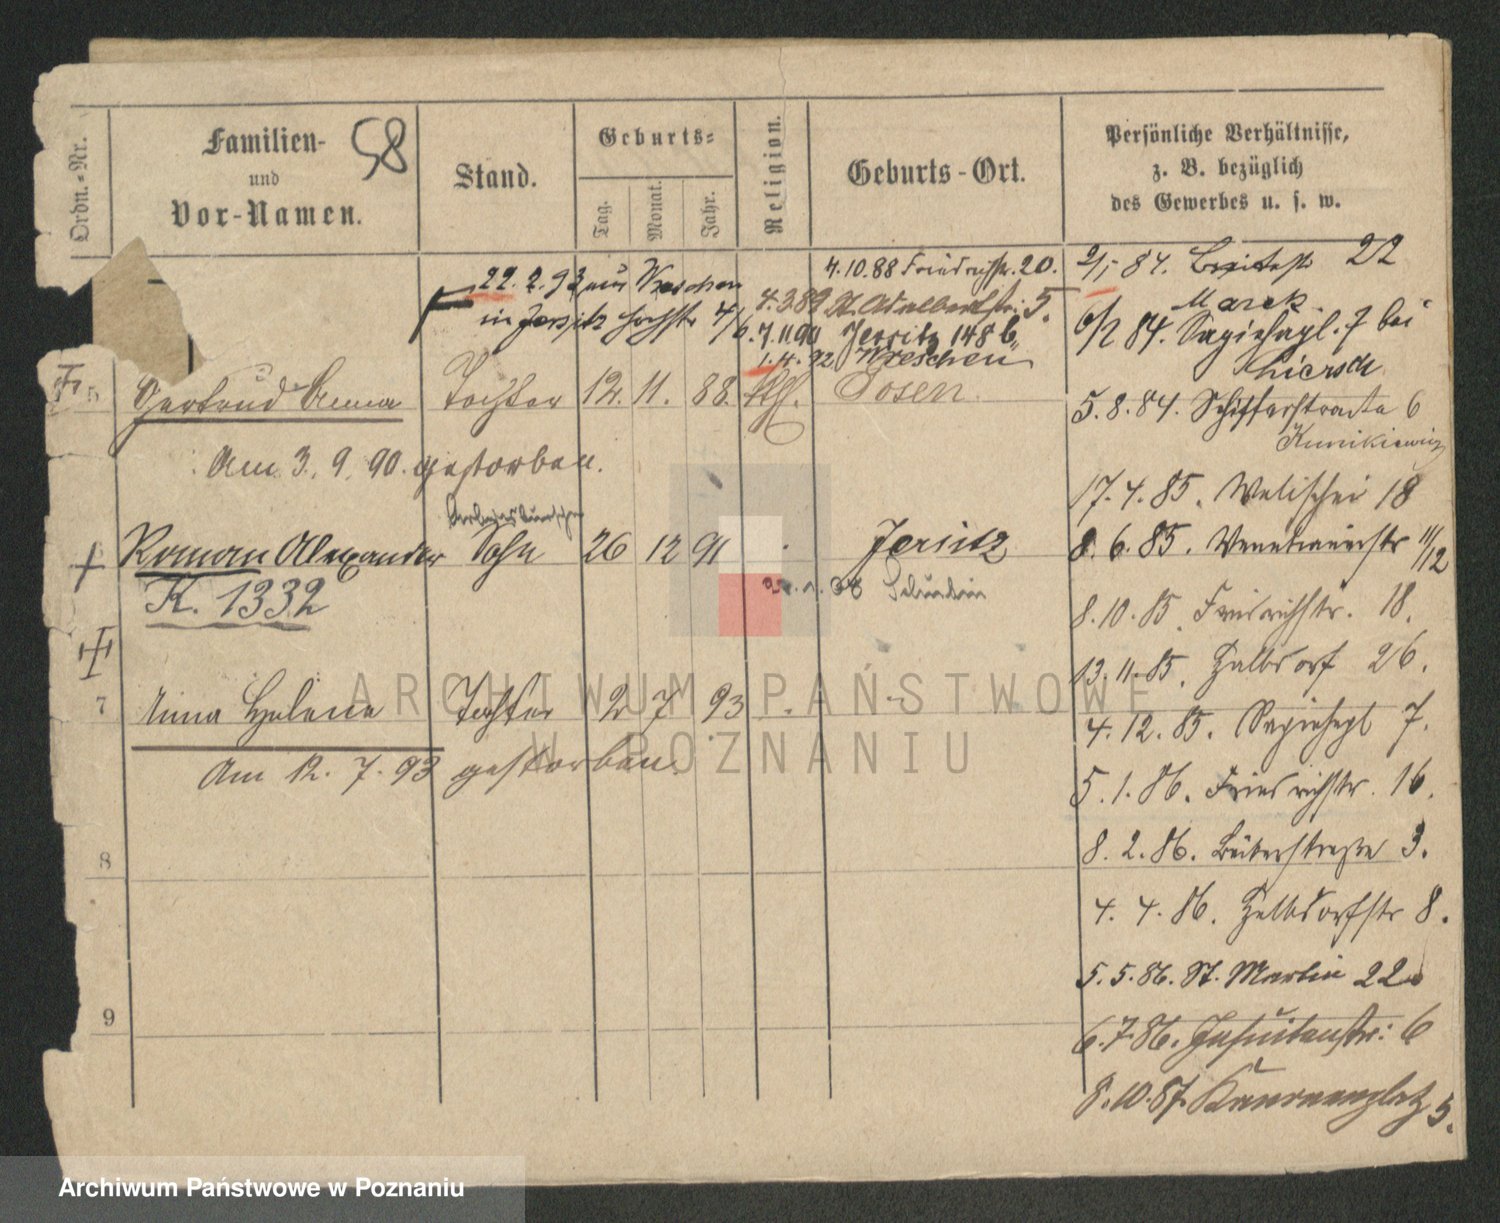 Ordn.-Nr.
Familien-
und
Vor-Namen.
58
Stand.
Geburts-
Tag.
Monat.
Jahr.
Religion.
Geburts-Ort.
Persönliche Verhältnisse,
z. B. bezüglich
des Gewerbes u. s. w.
22. 2. 93 aus Wreschen
in Jersitz
4.10.88 Friedrichstr. 20.
4.3.89 St. Adalbertstr. 5.
7.11.90 Jersitz 148b
1.4.92 Wreschen
5
Gertrud Anna Tochter 12. 11. 88. Posen.
Am 3. 9. 90. gestorben.
Roman Alexander Sohn 26 12 91 Jersitz
K. 1332
7
Anna Helene Tochter 2 7 93
Am 12. 7. 93 gestorben.
8
9
84. Breitestr 22
Marek.
84. Sapiehapl. 7 bei
Hiersch
5.8.84. Schifferstraße 6
17.4.85. Wallischei 18
8.6.85. Venetianerstr 11/12
8.10.85. Friedrichstr. 18.
13.11.85. Halbdorf 26.
4.12.85. Sapiehapl 7.
5.1.86. Friedrichstr. 16.
8.2.86. Bäckerstraße 3.
4.4.86. Halbdorfstr 8.
5.5.86. St. Martin 22
6.7.86. Jesuitenstr: 6
8.10.87. Kanonenplatz 5.
ARCHIWUM PAŃSTWOWE
W POZNANIU
Archiwum Państwowe w Poznaniu